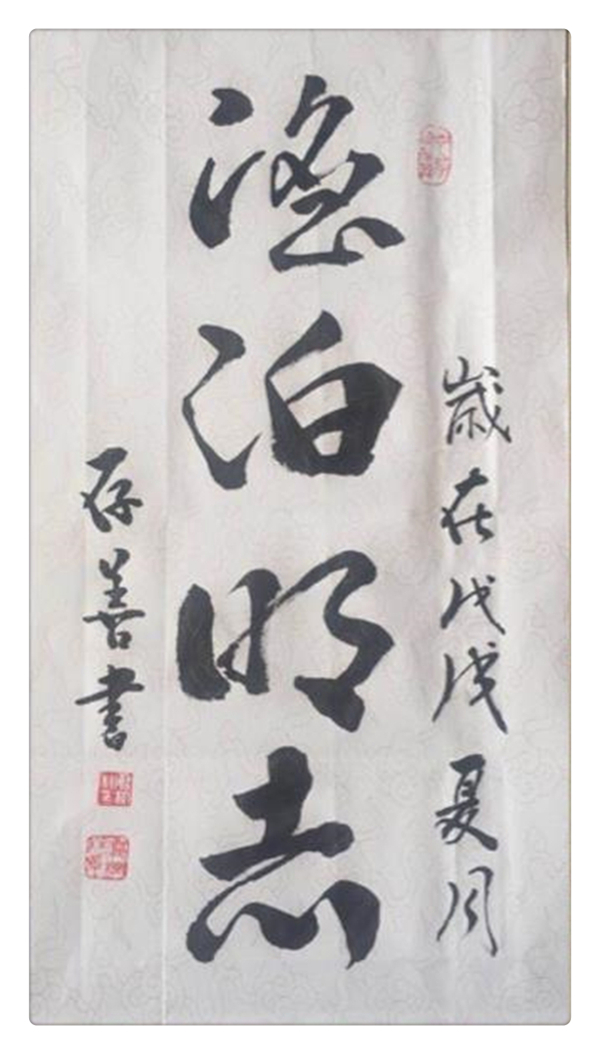 歲在戊戌夏月
澹泊明志
存善書